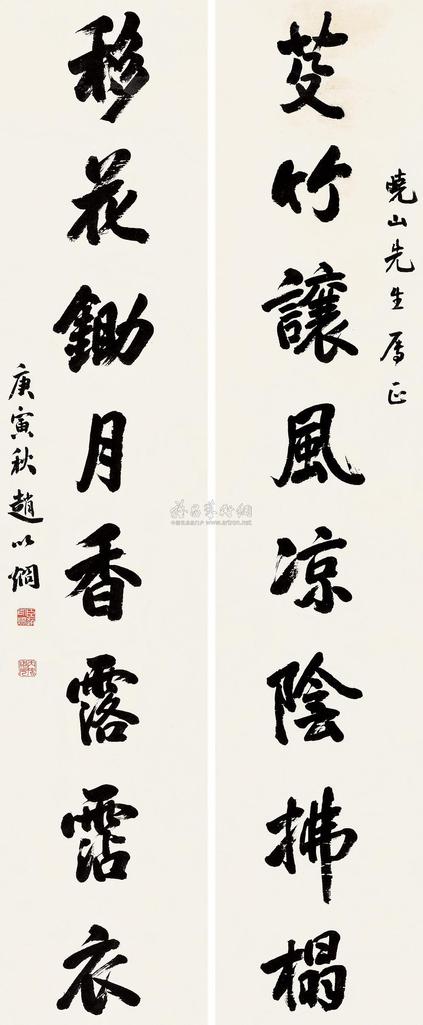 曉山先生属正
芟竹讓風凉陰拂榻
移花鋤月香露霑衣
庚寅秋趙以烱
雅昌藝術網
www.artron.net